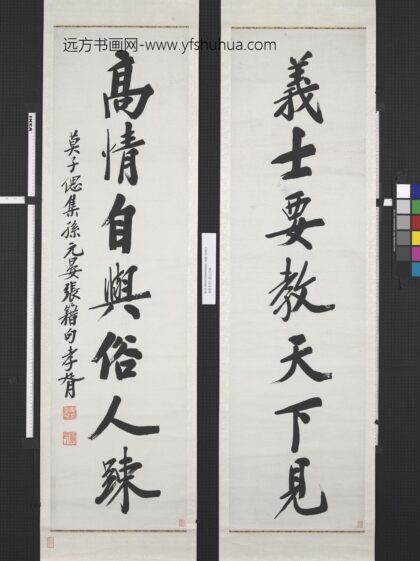 远方书画网-www.yfshuhua.com
義士要教天下見
高情自與俗人踈
莫子偲集孫元晏張籍句孝胥